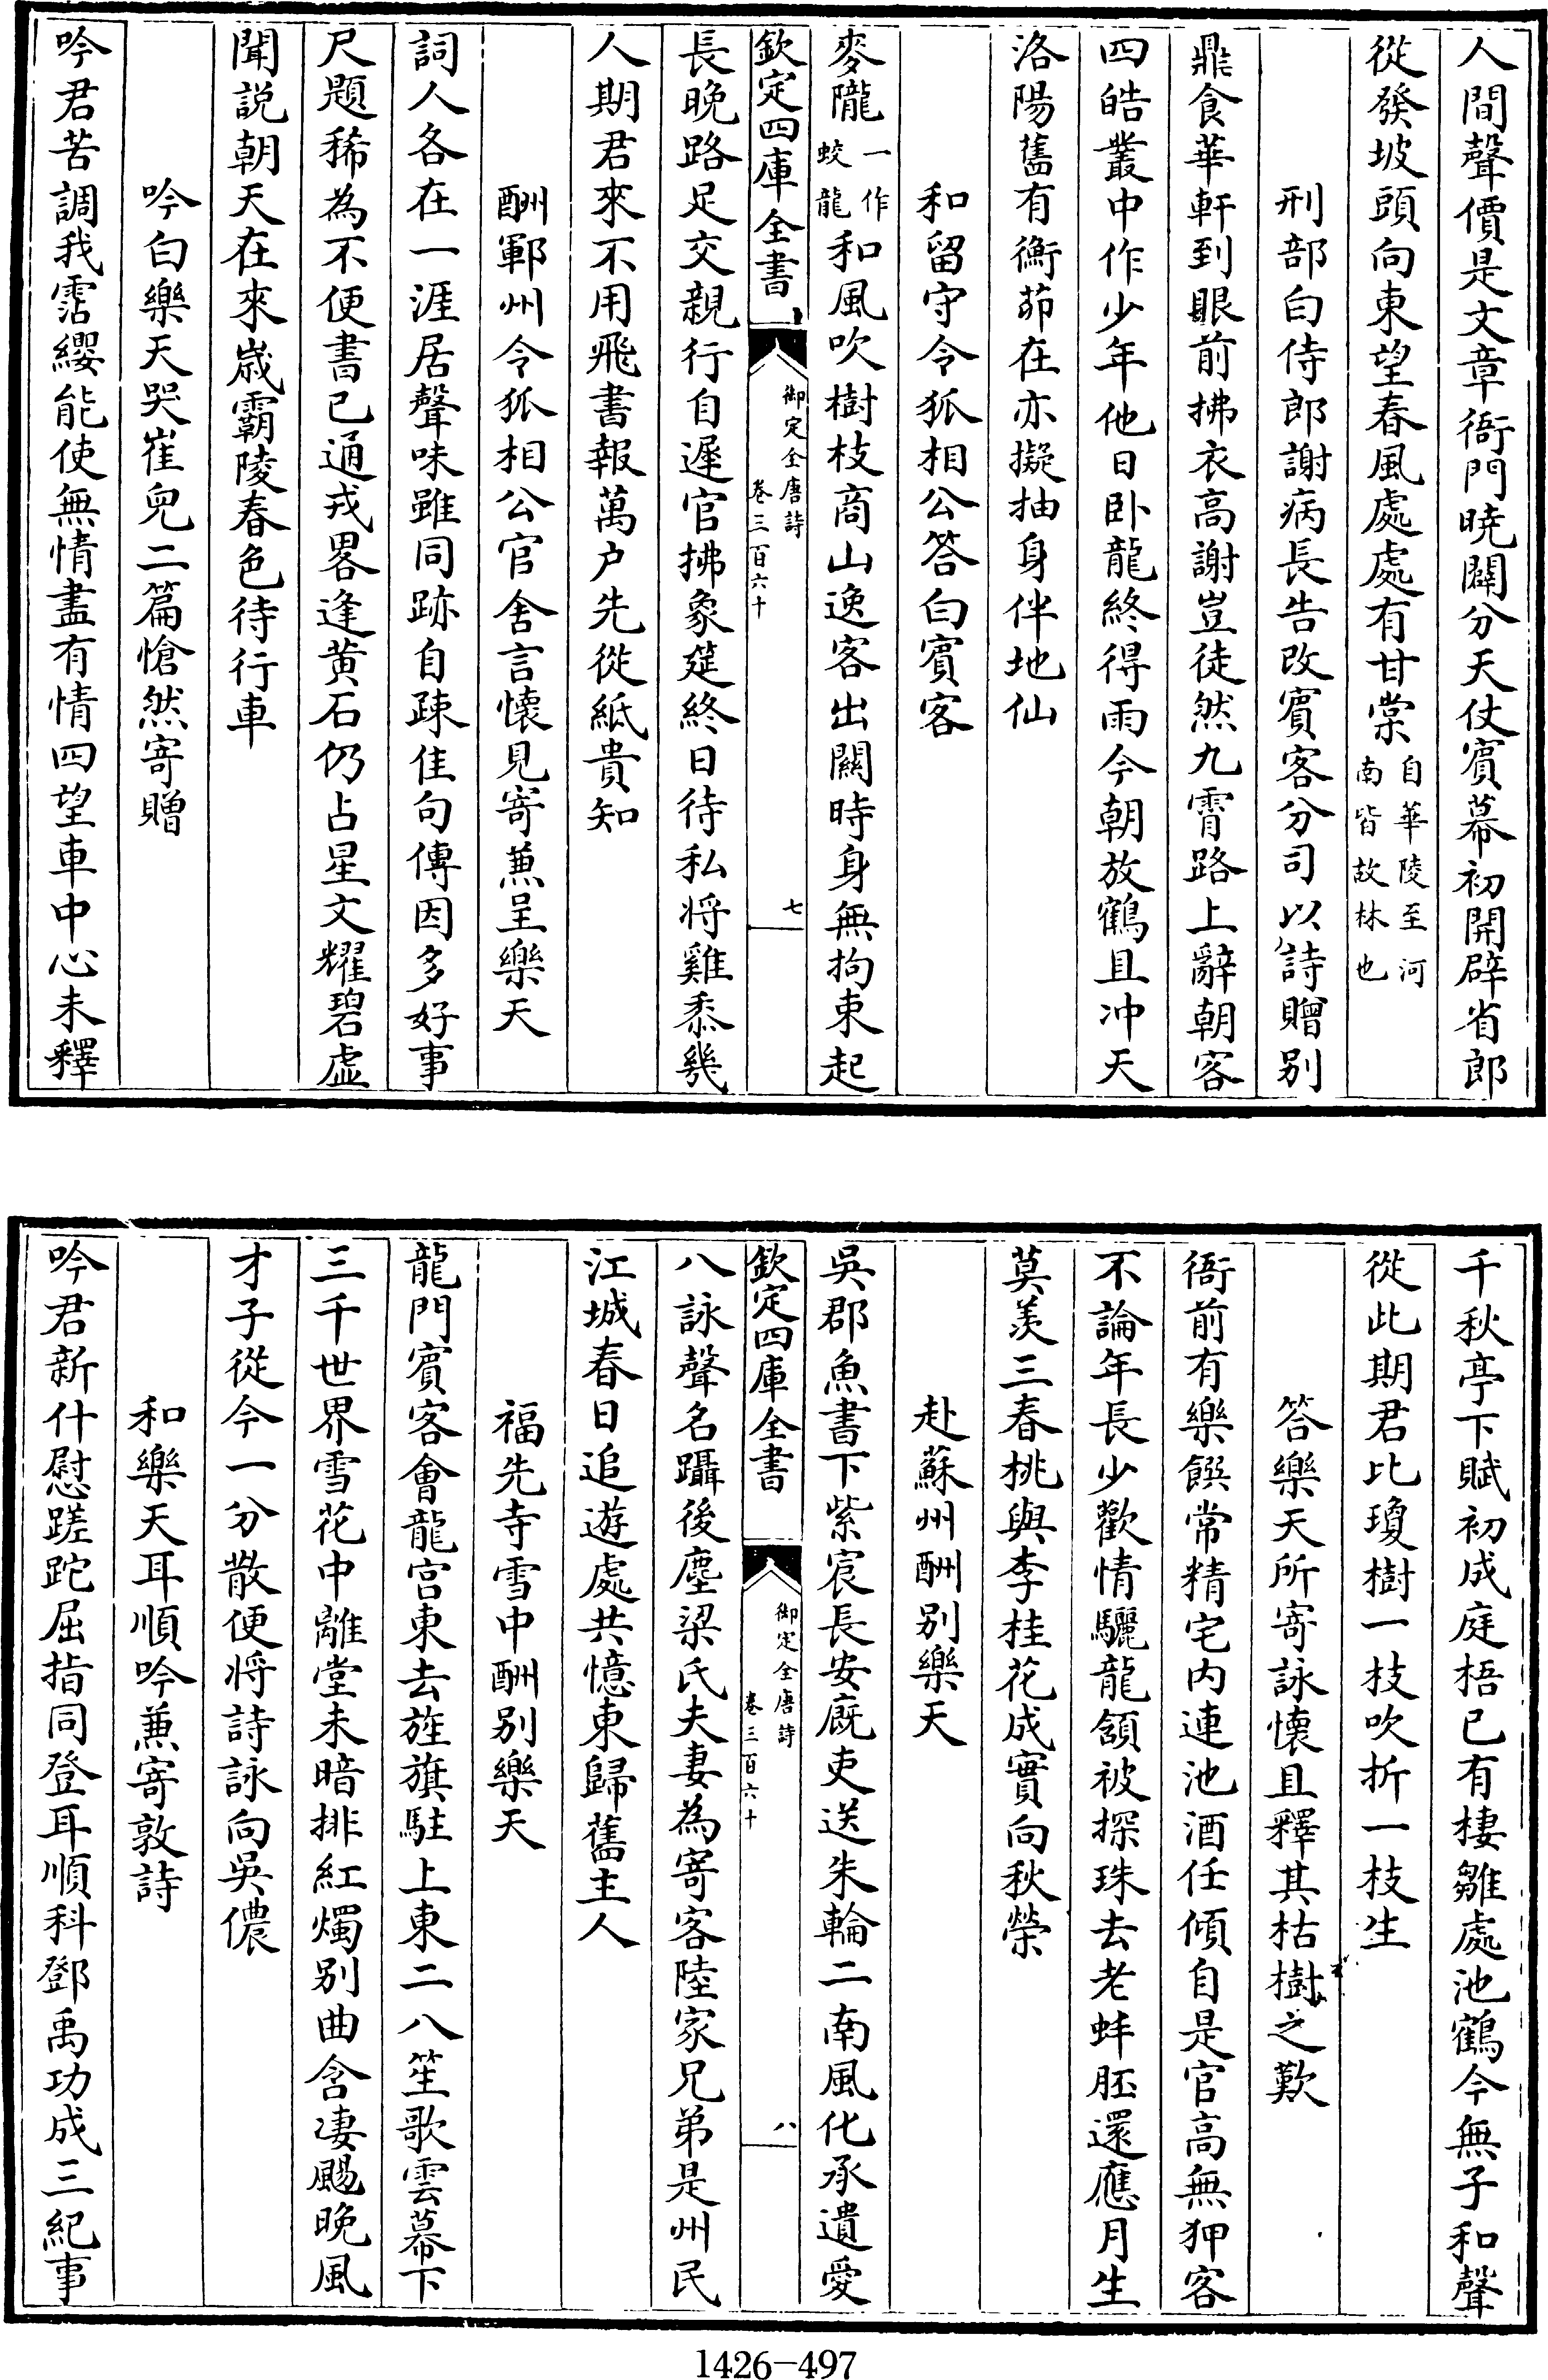 人間聲價是文章衙門曉闢分天仗賓幕初開辟省郎
從發坡頭向東望春風處處有甘棠自華陵至河南皆故林也
刑部白侍郎謝病長告改賓客分司以詩贈别
鼎食華軒到眼前拂衣高謝豈徒然九霄路上辭朝客
四皓叢中作少年他日卧龍終得雨今朝放鶴且冲天
洛陽舊有衡茆在亦擬抽身伴地仙
和留守令狐相公答白賓客
麥隴一作蛟龍和風吹樹枝商山逸客出關時身無拘束起
欽定四庫全書
御定全唐詩
卷三百六十
七
長晚路足交親行自遲官拂象筵終日待私将雞黍幾
人期君來不用飛書報萬户先從紙貴知
酬鄆州令狐相公官舍言懷見寄兼呈樂天
詞人各在一涯居聲味雖同跡自疎佳句傳因多好事
尺題稀為不便書已通戎畧逢黄石仍占星文耀碧虛
聞説朝天在來嵗霸陵春色待行車
吟白樂天哭崔兒二篇愴然寄贈
吟君苦調我霑纓能使無情盡有情四望車中心未釋
千秋亭下賦初成庭梧已有棲雛處池鶴今無子和聲
從此期君比瓊樹一枝吹折一枝生
答樂天所寄詠懷且釋其枯樹之歎
衙前有樂饌常精宅内連池酒任傾自是官高無狎客
不論年長少歡情驪龍頷被探珠去老蚌胚還應月生
莫羨三春桃與李桂花成實向秋榮
赴蘇州酬别樂天
吳郡魚書下紫宸長安厩吏送朱輪二南風化承遺愛
欽定四庫全書
御定全唐詩
卷三百六十
八
八詠聲名躡後塵梁氏夫妻為寄客陸家兄弟是州民
江城春日追遊處共憶東歸舊主人
福先寺雪中酬别樂天
龍門賓客會龍宫東去旌旗駐上東二八笙歌雲幕下
三千世界雪花中離堂未暗排紅燭别曲含凄颺晚風
才子從今一分散便将詩詠向吳儂
和樂天耳順吟兼寄敦詩
吟君新什慰蹉跎屈指同登耳順科鄧禹功成三紀事
1426-497